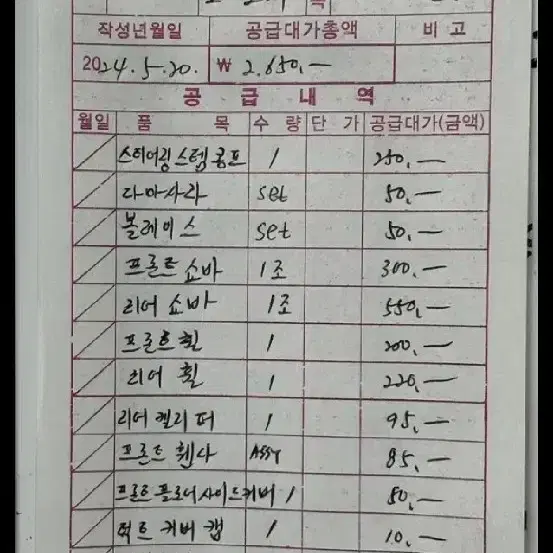 작성년월일 공급대가총액 비고
2024.5.20. ₩ 2.650.—
공급내역
월일 품목 수량 단가 공급대가(금액)
스티어링스템콤프 1 250.—
다마사라 set 50.—
볼레이스 set 50.—
프론트 쇼바 1조 300.—
리어 쇼바 1조 550.—
프론트 휠 1 200.—
리어 휠 1 220.—
리어 켈리퍼 1 95.—
프론트 휀다 ASSY 85.—
프론트플로어사이드커버 1 80.—
덕트 커버 캡 1 10.—